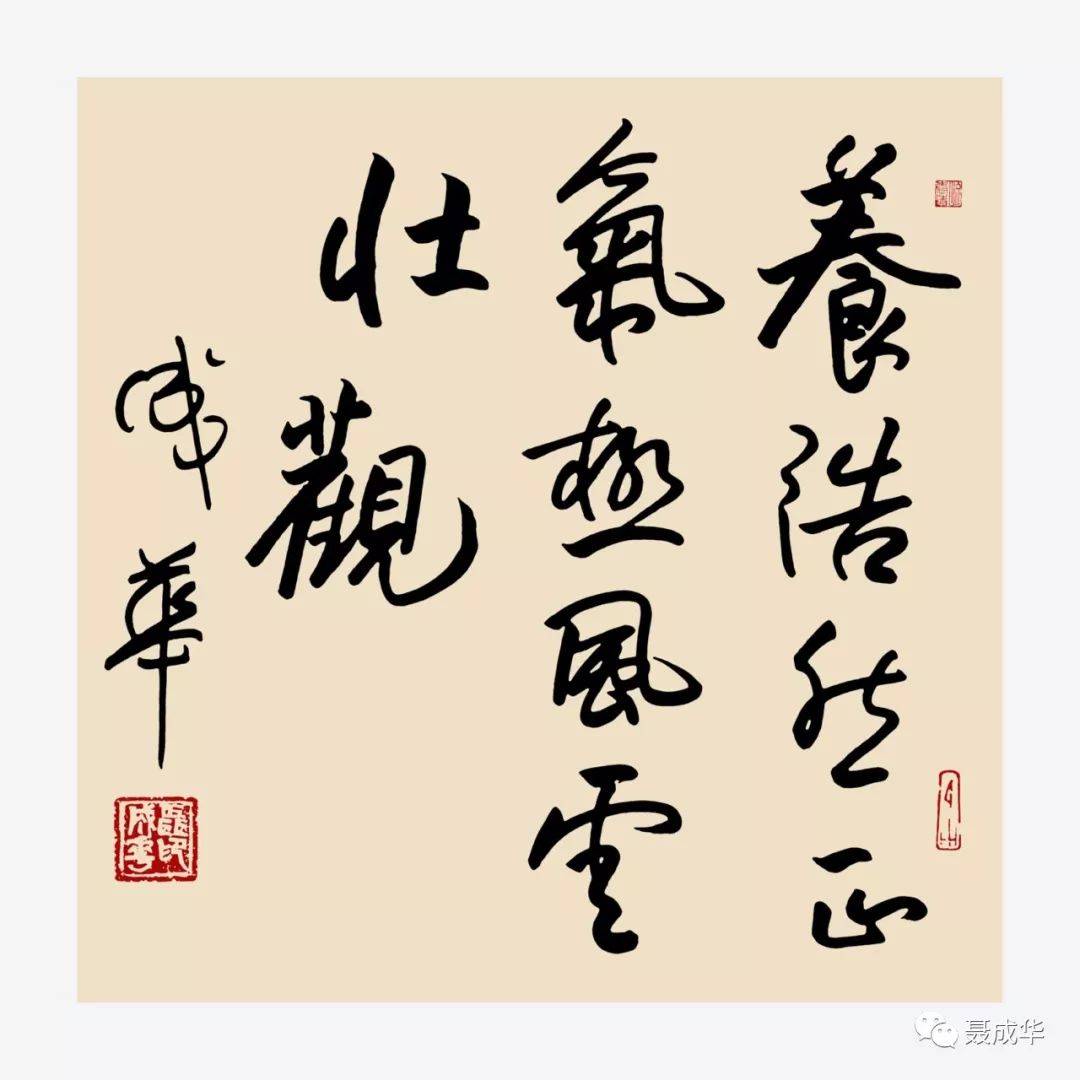 養浩然正
氣極風雲
壯觀
成華
聶成華